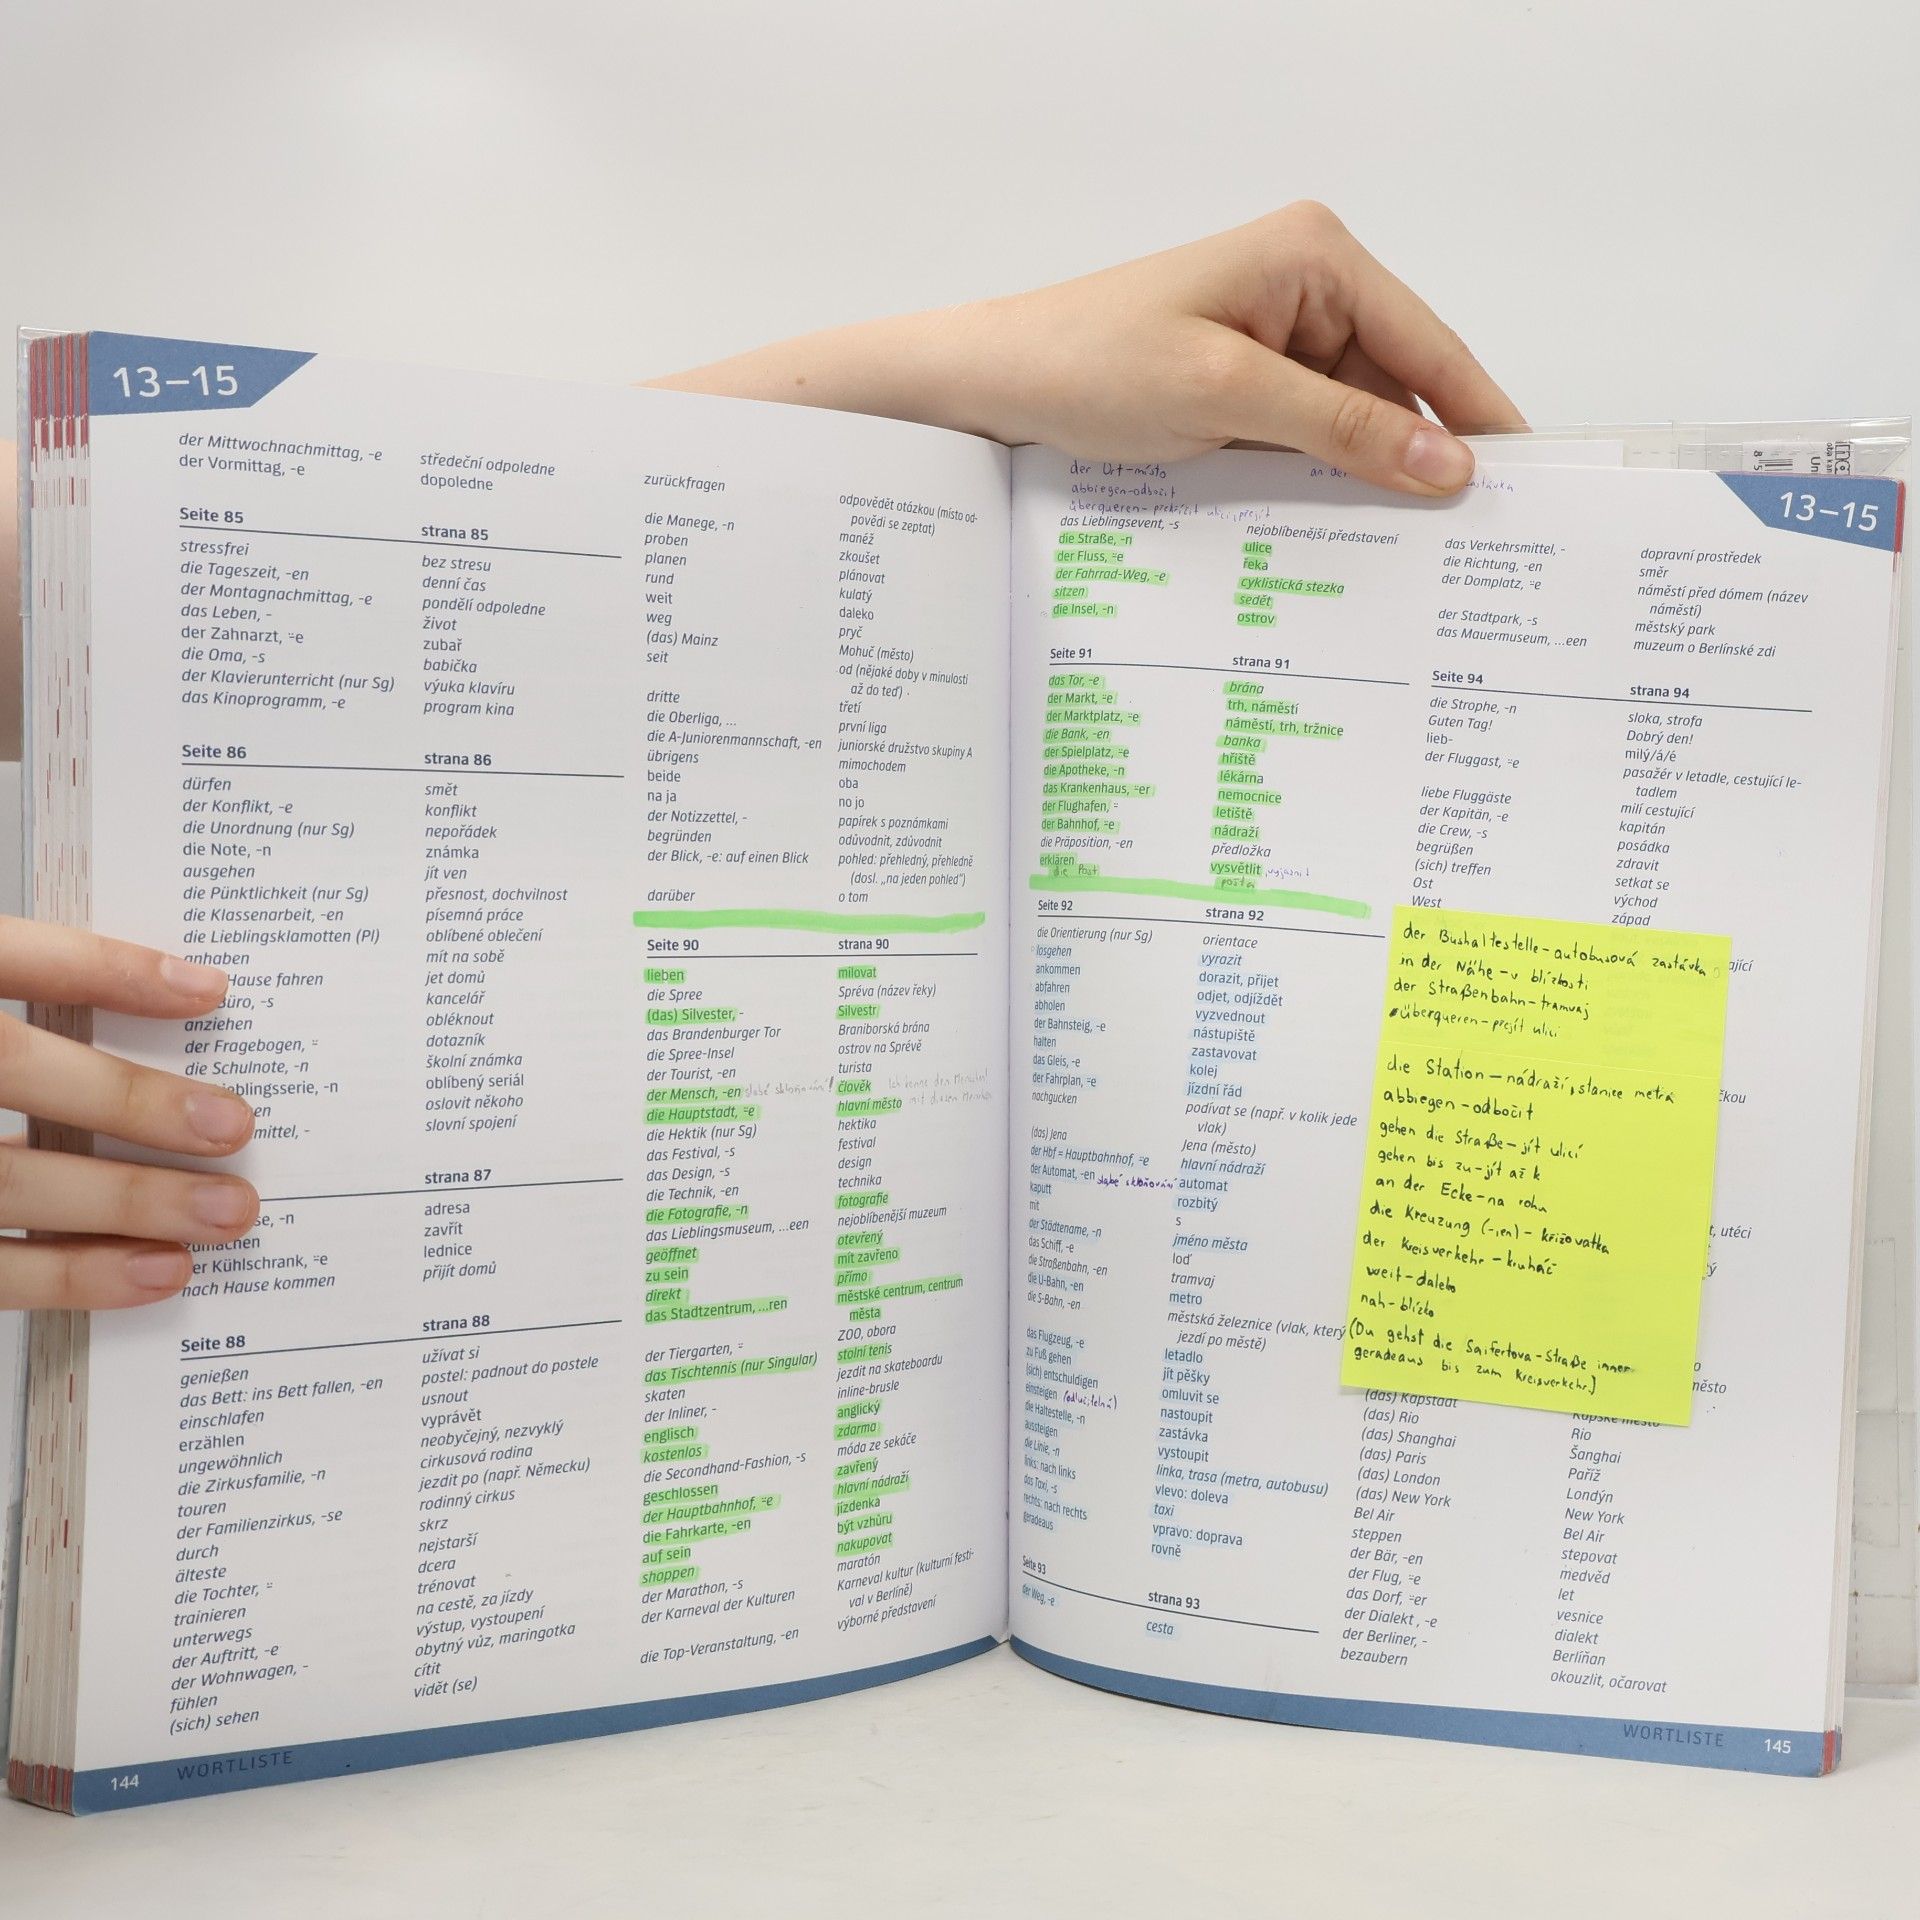 13–15
der Mittwochnachmittag, -e středeční odpoledne
der Vormittag, -e dopoledne
Seite 85 strana 85
stressfrei bez stresu
die Tageszeit, -en denní čas
der Montagnachmittag, -e pondělí odpoledne
das Leben, - život
der Zahnarzt, ¨-e zubař
die Oma, -s babička
der Klavierunterricht (nur Sg) výuka klavíru
das Kinoprogramm, -e program kina
Seite 86 strana 86
dürfen smět
der Konflikt, -e konflikt
die Unordnung (nur Sg) nepořádek
die Note, -n známka
ausgehen jít ven
die Pünktlichkeit (nur Sg) přesnost, dochvilnost
die Klassenarbeit, -en písemná práce
die Lieblingsklamotten (Pl) oblíbené oblečení
anhaben mít na sobě
Hause fahren jet domů
Büro, -s kancelář
anziehen obléknout
der Fragebogen, ¨ dotazník
die Schulnote, -n školní známka
ieblingsserie, -n oblíbený seriál
en oslovit někoho
mittel, - slovní spojení
strana 87
se, -n adresa
zumachen zavřít
er Kühlschrank, ¨-e lednice
nach Hause kommen přijít domů
Seite 88 strana 88
genießen užívat si
das Bett: ins Bett fallen, -en postel: padnout do postele
einschlafen usnout
erzählen vyprávět
ungewöhnlich neobyčejný, nezvyklý
die Zirkusfamilie, -n cirkusová rodina
touren jezdit po (např. Německu)
der Familienzirkus, -se rodinný cirkus
durch skrz
älteste nejstarší
die Tochter, ¨ dcera
trainieren trénovat
unterwegs na cestě, za jízdy
der Auftritt, -e výstup, vystoupení
der Wohnwagen, - obytný vůz, maringotka
fühlen cítit
(sich) sehen vidět (se)
144 WORTLISTE
zurückfragen odpovědět otázkou (místo od-
povědi se zeptat)
die Manege, -n manéž
proben zkoušet
planen plánovat
rund kulatý
weit daleko
weg pryč
(das) Mainz Mohuč (město)
seit od (nějaké doby v minulosti
až do teď)
dritte třetí
die Oberliga, ... první liga
die A-Juniorenmannschaft, -en juniorské družstvo skupiny A
übrigens mimochodem
beide oba
na ja no jo
der Notizzettel, - papírek s poznámkami
begründen odůvodnit, zdůvodnit
der Blick, -e: auf einen Blick pohled: přehledný, přehledně
(dosl. „na jeden pohled")
darüber o tom
Seite 90 strana 90
lieben milovat
die Spree Spréva (název řeky)
(das) Silvester, - Silvestr
das Brandenburger Tor Braniborská brána
die Spree-Insel ostrov na Sprévě
der Tourist, -en turista
der Mensch, -en slabé skloňování! člověk Ich kenne den Menschen!
die Hauptstadt, ¨-e hlavní město mit diesen Menschen
die Hektik (nur Sg) hektika
das Festival, -s festival
das Design, -s design
die Technik, -en technika
die Fotografie, -n fotografie
das Lieblingsmuseum, ...een nejoblíbenější muzeum
geöffnet otevřený
zu sein mít zavřeno
direkt přímo
das Stadtzentrum, ...ren městské centrum, centrum
města
der Tiergarten, ¨ ZOO, obora
das Tischtennis (nur Singular) stolní tenis
skaten jezdit na skateboardu
der Inliner, - inline-brusle
englisch anglický
kostenlos zdarma
die Secondhand-Fashion, -s móda ze sekáče
geschlossen zavřený
der Hauptbahnhof, ¨-e hlavní nádraží
die Fahrkarte, -en jízdenka
auf sein být vzhůru
shoppen nakupovat
der Marathon, -s maratón
der Karneval der Kulturen Karneval kultur (kulturní festi-
val v Berlíně)
die Top-Veranstaltung, -en výborné představení
der Ort-místo an der zastávka
abbiegen-odbočit
überqueren-překřížit ulici, přejít
das Lieblingsevent, -s nejoblíbenější představení
die Straße, -n ulice
der Fluss, ¨-e řeka
der Fahrrad-Weg, -e cyklistická stezka
sitzen sedět
die Insel, -n ostrov
Seite 91 strana 91
das Tor, -e brána
der Markt, ¨-e trh, náměstí
der Marktplatz, ¨-e náměstí, trh, tržnice
die Bank, -en banka
der Spielplatz, ¨-e hřiště
die Apotheke, -n lékárna
das Krankenhaus, ¨-er nemocnice
der Flughafen, ¨ letiště
der Bahnhof, ¨-e nádraží
die Präposition, -en předložka
erklären vysvětlit, vyjasnit
die Post pošta
Seite 92 strana 92
die Orientierung (nur Sg) orientace
losgehen vyrazit
ankommen dorazit, přijet
abfahren odjet, odjíždět
abholen vyzvednout
der Bahnsteig, -e nástupiště
halten zastavovat
das Gleis, -e kolej
der Fahrplan, ¨-e jízdní řád
nachgucken podívat se (např. v kolik jede
vlak)
(das) Jena Jena (město)
der Hbf = Hauptbahnhof, ¨-e hlavní nádraží
der Automat, -en slabé skloňování automat
kaputt rozbitý
mit s
der Städtename, -n jméno města
das Schiff, -e loď
die Straßenbahn, -en tramvaj
die U-Bahn, -en metro
die S-Bahn, -en městská železnice (vlak, který
jezdí po městě)
das Flugzeug, -e letadlo
zu Fuß gehen jít pěšky
(sich) entschuldigen omluvit se
einsteigen (odlučitelná) nastoupit
die Haltestelle, -n zastávka
aussteigen vystoupit
die Linie, -n linka, trasa (metra, autobusu)
links: nach links vlevo: doleva
das Taxi, -s taxi
rechts: nach rechts vpravo: doprava
geradeaus rovně
Seite 93 strana 93
der Weg, -e cesta
13–15
das Verkehrsmittel, - dopravní prostředek
die Richtung, -en směr
der Domplatz, ¨-e náměstí před dómem (název
náměstí)
der Stadtpark, -s městský park
das Mauermuseum, ...een muzeum o Berlínské zdi
Seite 94 strana 94
die Strophe, -n sloka, strofa
Guten Tag! Dobrý den!
lieb- milý/á/é
der Fluggast, ¨-e pasažér v letadle, cestující le-
tadlem
liebe Fluggäste milí cestující
der Kapitän, -e kapitán
die Crew, -s posádka
begrüßen zdravit
(sich) treffen setkat se
Ost východ
West západ
der Bushaltestelle-autobusová zastávka
in der Nähe-v blízkosti
der Straßenbahn-tramvaj
überqueren-přejít ulici
die Station-nádraží, stanice metra
abbiegen-odbočit
gehen die Straße-jít ulicí
gehen bis zu-jít až k
an der Ecke-na rohu
die Kreuzung (-,en)-křižovatka
der Kreisverkehr-kruháč
weit-daleko
nah-blízko
(Du gehst die Saifertova-Straße immer
geradeaus bis zum Kreisverkehr.)
ající
čkou
t, utéci
ý
město
(das) Kapstadt Kapské město
(das) Rio Rio
(das) Shanghai Šanghai
(das) Paris Paříž
(das) London Londýn
(das) New York New York
Bel Air Bel Air
steppen stepovat
der Bär, -en medvěd
der Flug, ¨-e let
das Dorf, ¨-er vesnice
der Dialekt , -e dialekt
der Berliner, - Berlíňan
bezaubern okouzlit, očarovat
WORTLISTE 145